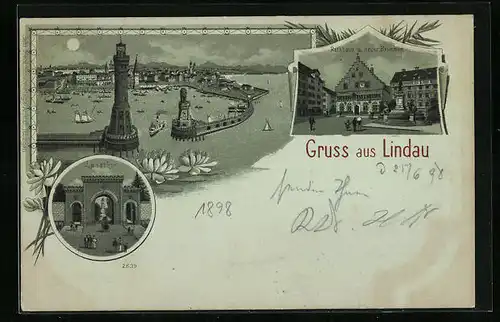 Rathaus u. neuer Brunnen
Gruss aus Lindau
D 25/6 98
senden Ihnen
1898
2639